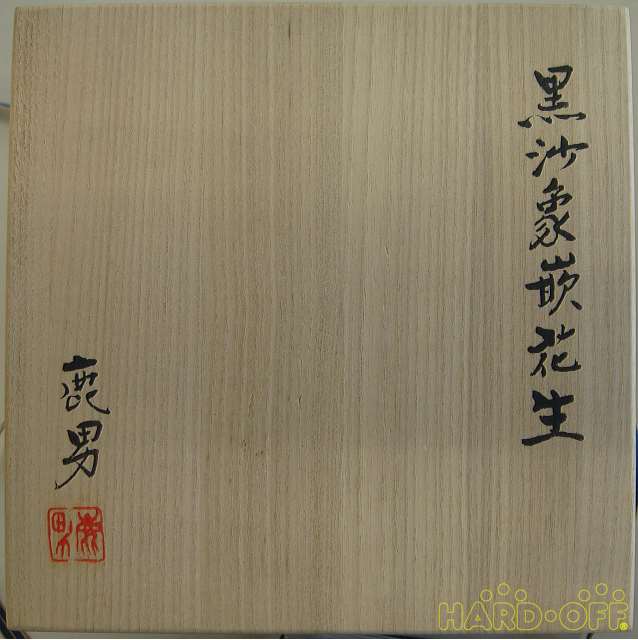 黒沙象嵌花生
鹿男
鹿男
HARD·OFF®